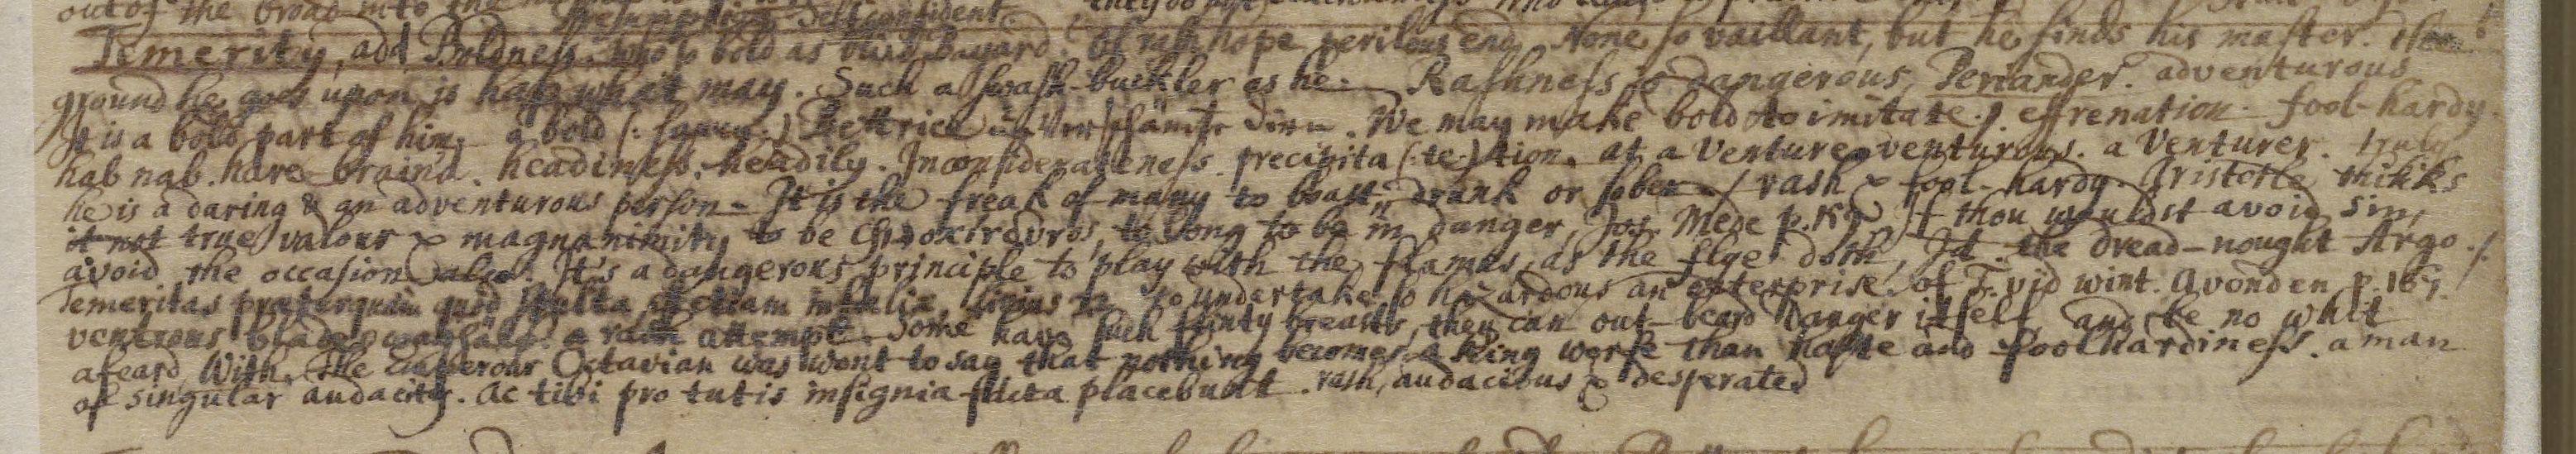 out of the broad into the
Presumption Selfconfident
Temerity, add Boldness. who so bold as blind Bayard. Of rash hope perilous end. None so vailiant, but he finds his master. the
ground he goes upon is hap what may. Such a swash-buckler as he. Rashness is dangerous, Periander. adventurous
It is a bold part of him, a bold (: sawcy :) Bettrice unverschämte dirn. We may make bold to imitate. effrenation. fool-hardy.
hab nab. hare-braind. headiness, headily. Inconsiderateness. precipita (:te:) tion. at a Venture, venturous. a Venturer. truly
he is a daring & an adventurous person. It is the freak of many to boast, drank or sober / rash & fool-hardy. Aristotle thinks
it not true valour & magnanimity to be to long to be in danger, Jos. Mede p. If thou wouldst avoid sin,
avoid the occasion also. It's a dangerous principle to play with the flames, as the flye doth, Id. the dread-nought Argo./.
Temeritas praeterquam quod stulta, est etiam infelix, Livius to undertake so hazardous an enterprise. of F. vid wint. Avonden p.
ventrous blade waghals. a rash attempt. Some have such flinty breasts, they can out-beard Danger itself, and be no whit
afeard, With. The Emperour Octavian was wont to say that nothing becomes a King worse than haste and foolhardiness. a man
of singular audacity. ac tibi pro tutis insignia facta placebunt. rash, audacious & desperate